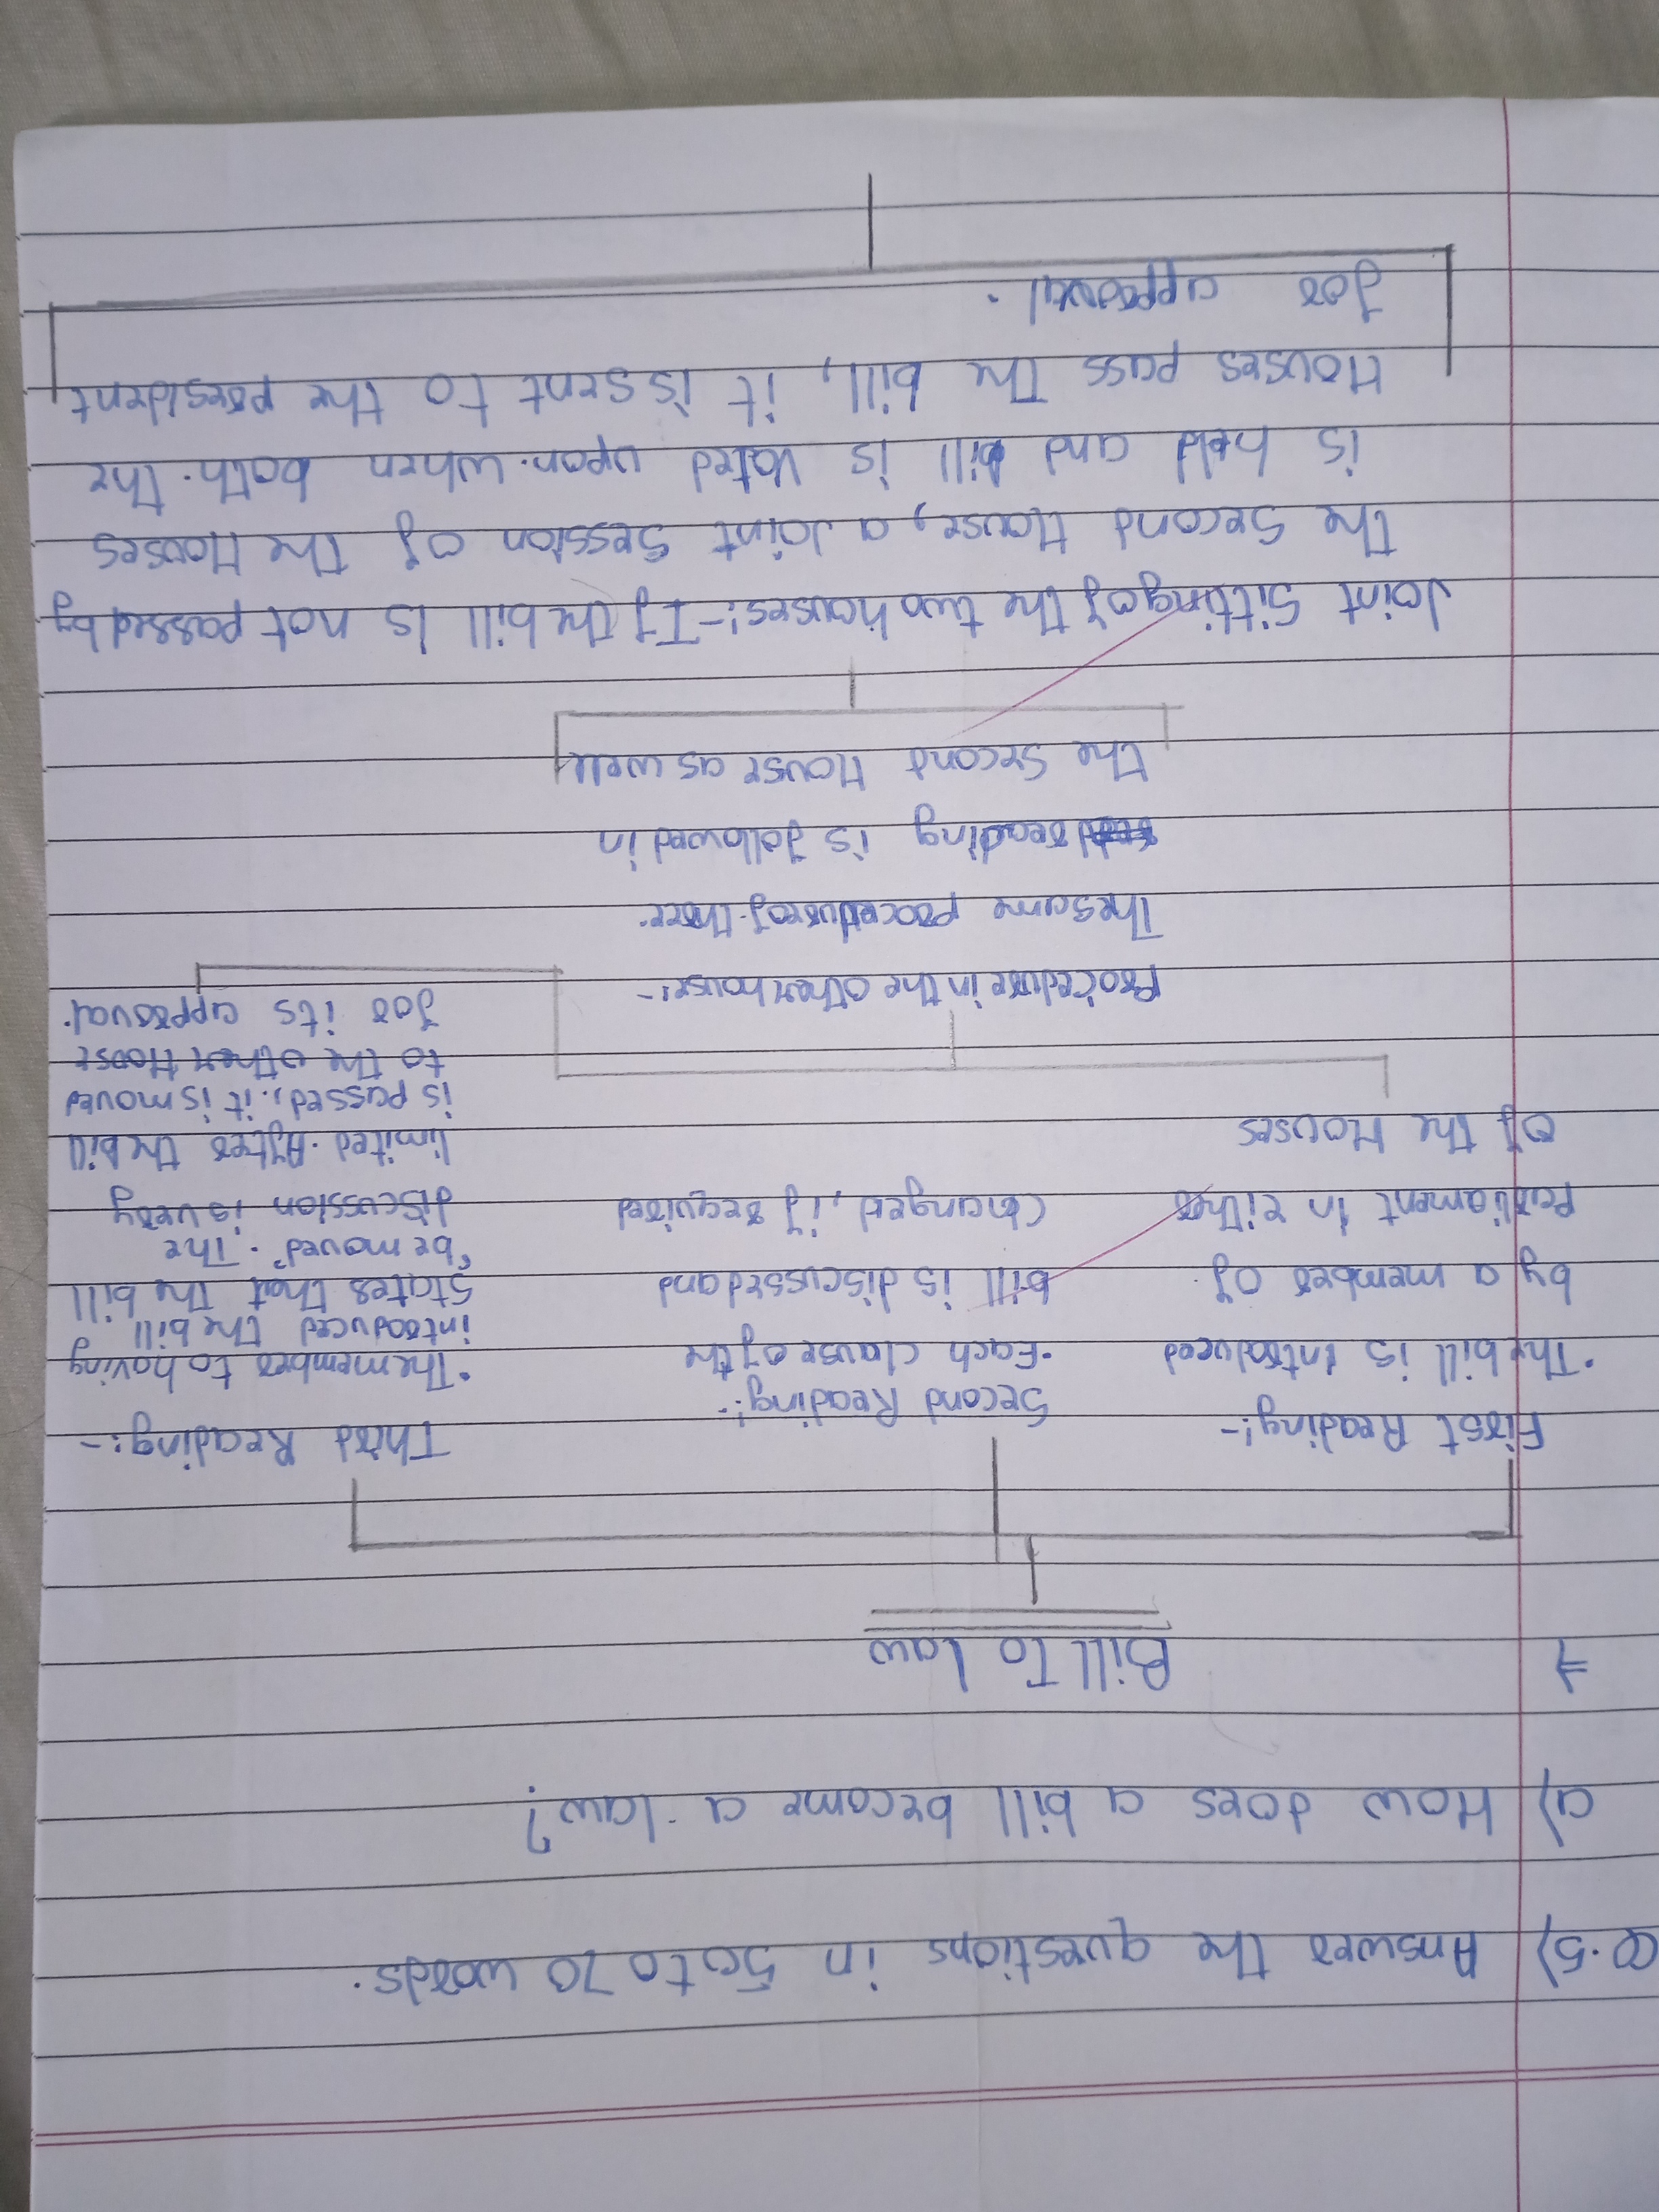 Q.5) Answer the questions in 50 to 70 words.
a) How does a bill become a law?
Bill To law
First Reading:-
• The bill is Introduced
by a member of
Parliament in either
of the Houses
Second Reading:-
• Each clause of the
bill is discussed and
changed, if required
Third Reading:-
• The member to having
introduced the bill
states that the bill
"be moved". The
discussion is very
limited. After the bill
is passed, it is moved
to the other House
for its approval.
Procedure in the other house:-
The same procedure of three
reading is followed in
the second House as well
Joint Sitting of the two houses:- If the bill is not passed by
the second House, a Joint Session of the Houses
is held and bill is Voted upon. when both the
Houses pass the bill, it is sent to the president
for approval.